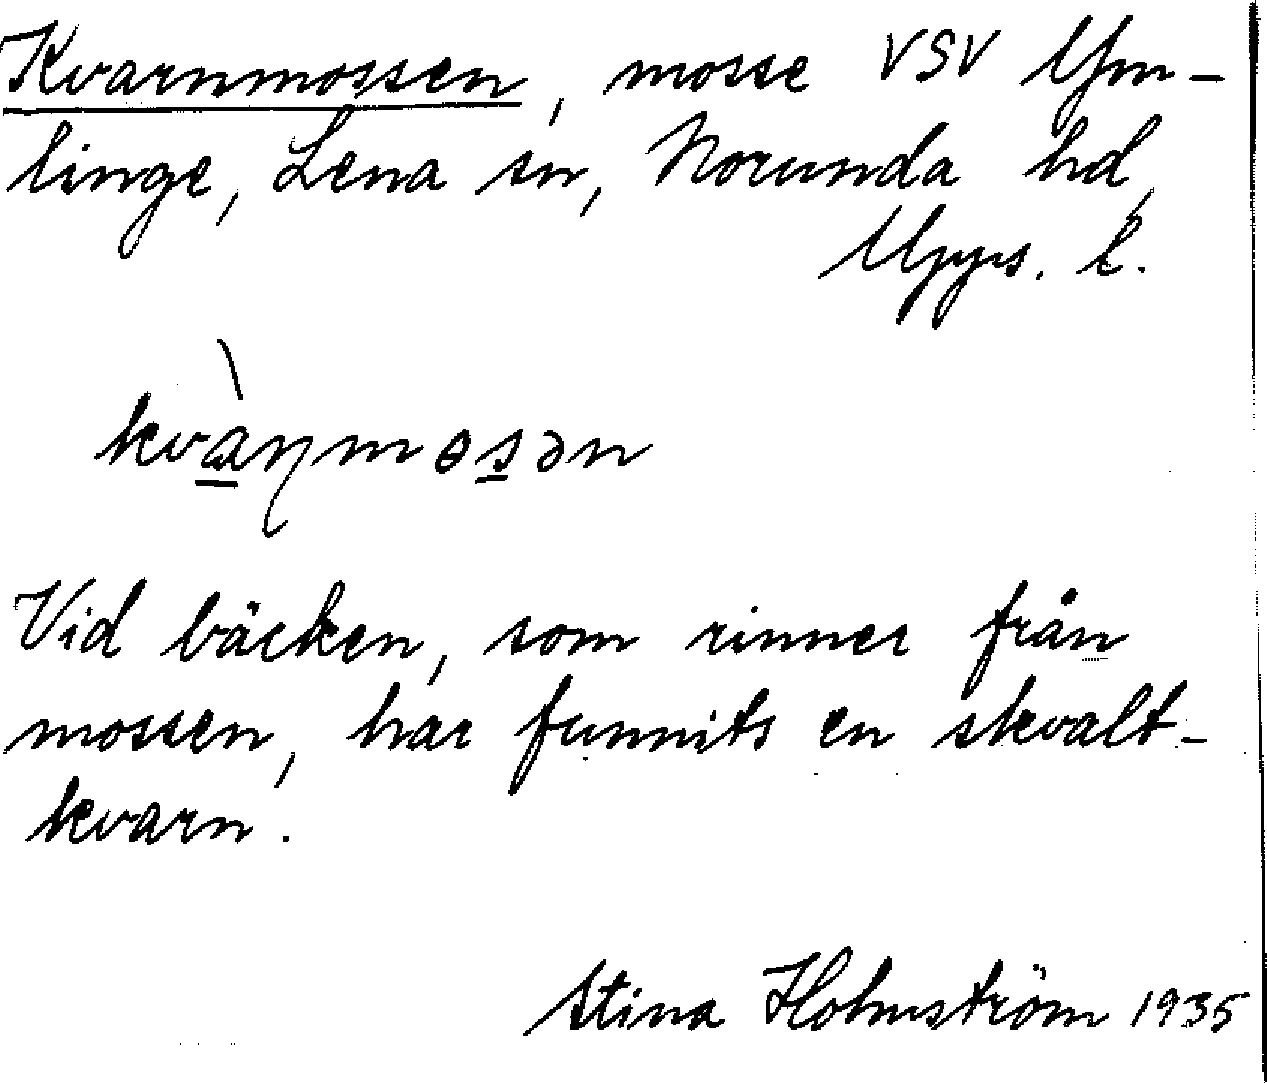 Kvarnmossen, mosse VSV Ym-
linge, Lena sn, Norunda hd,
Upps. l.
kvàɳmɵsən
Vid bäcken, som rinner från
mossen, har funnits en skvalt-
kvarn.
Stina Holmström 1935